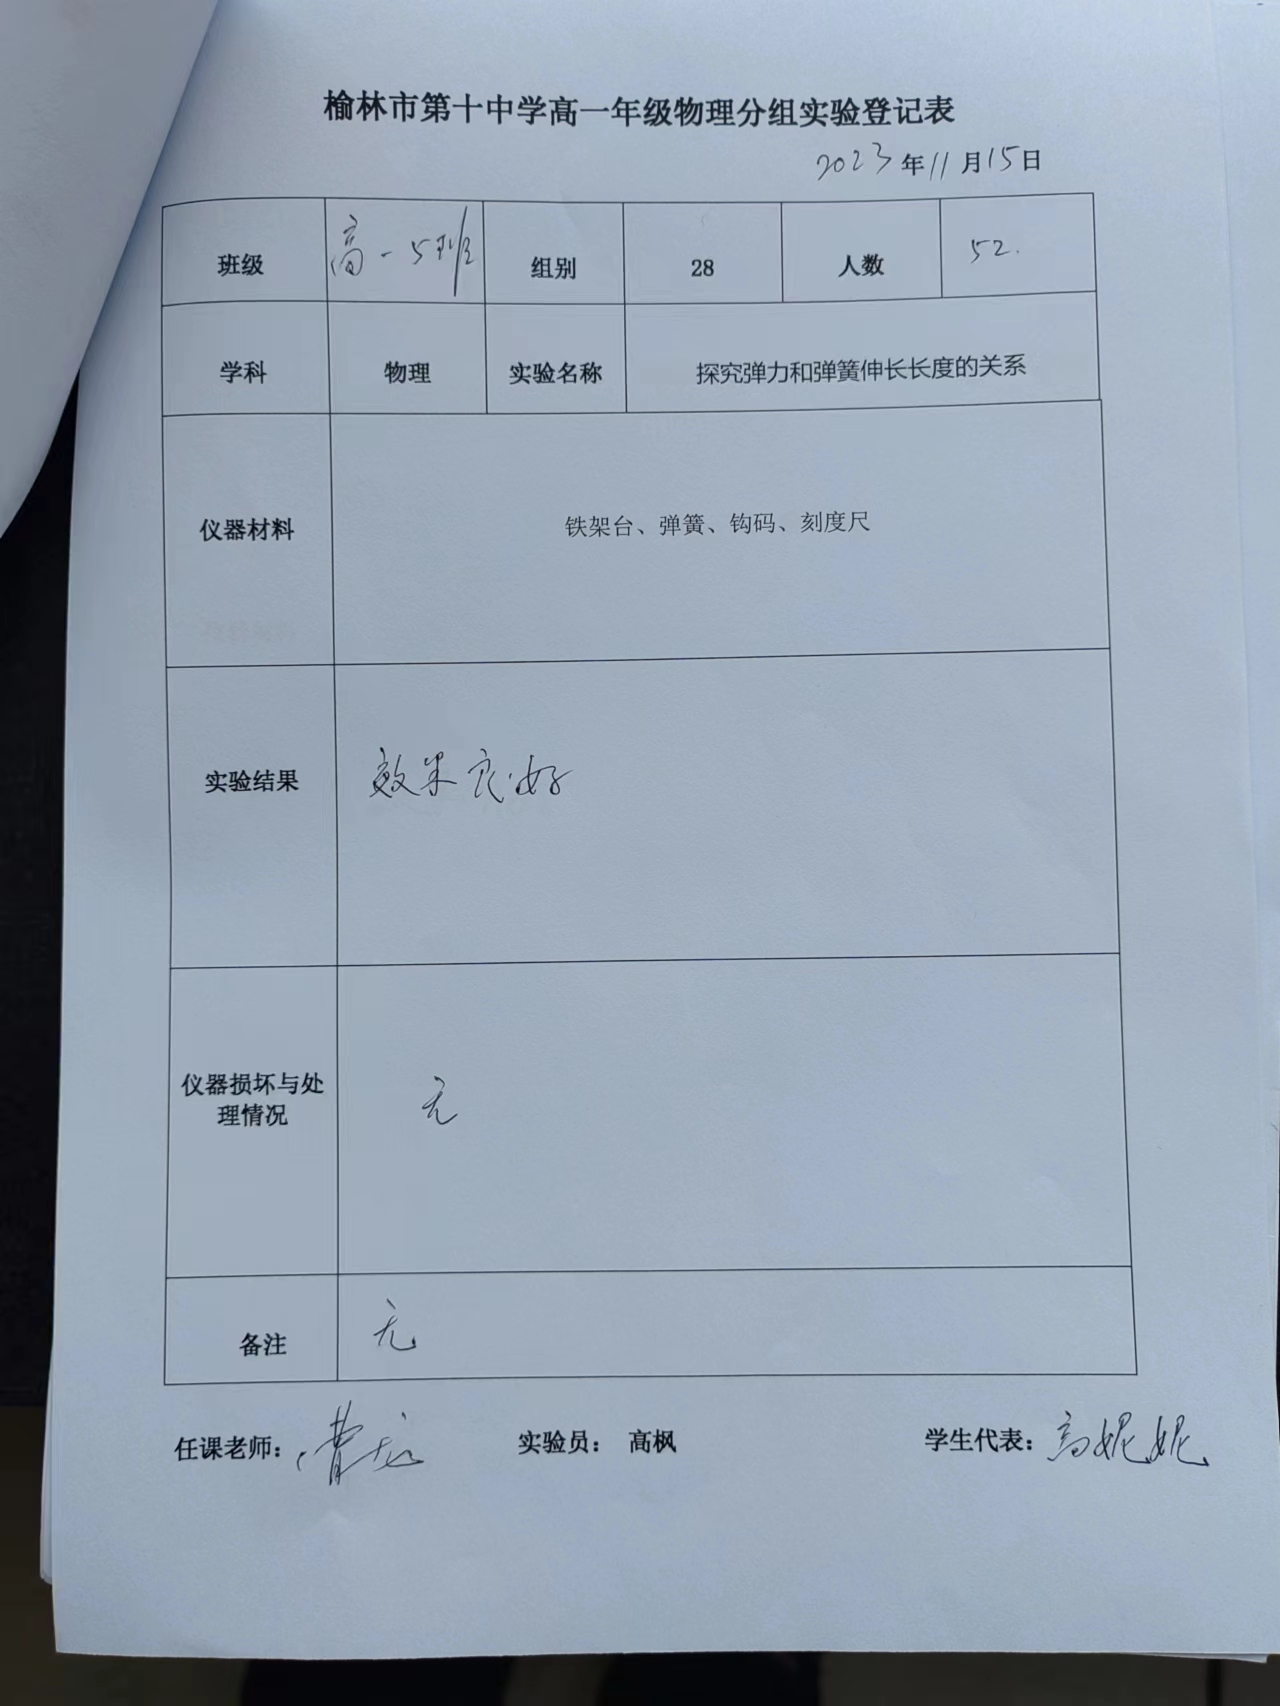 榆林市第十中学高一年级物理分组实验登记表
2023年11月15日
班级 高一5班 组别 28 人数 52.
学科 物理 实验名称 探究弹力和弹簧伸长长度的关系
仪器材料 铁架台、弹簧、钩码、刻度尺
实验结果 效果良好
仪器损坏与处
理情况 无
备注 无
任课老师： 实验员： 高枫 学生代表：高妮妮